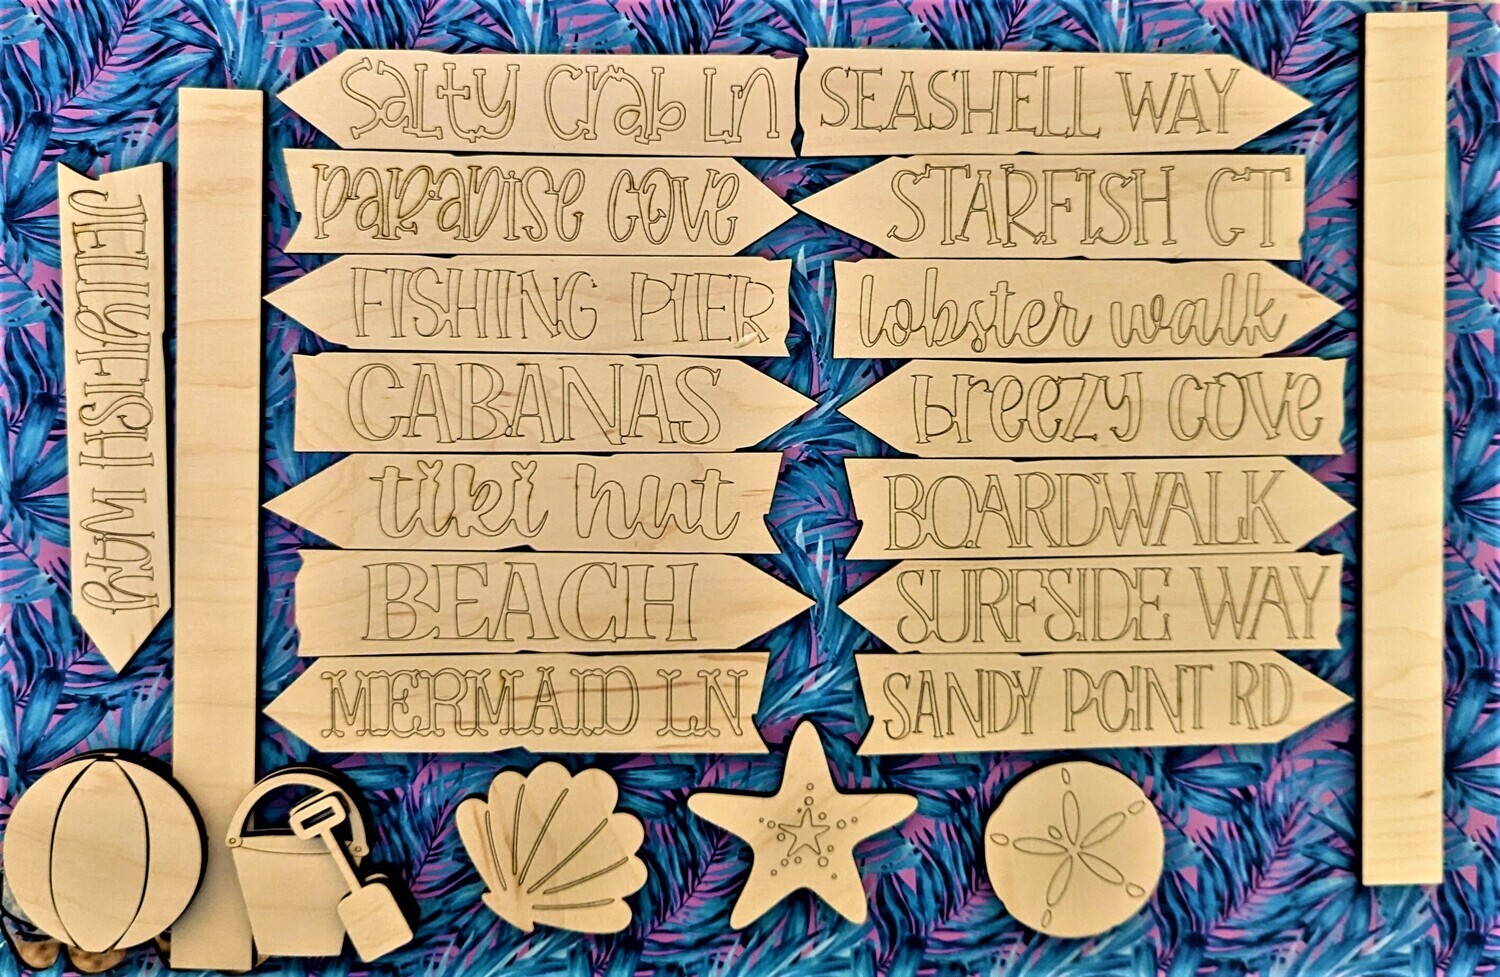 salty crab Ln
SEASHELL WAY
paradise cove
STARFISH CT
FISHING PIER
lobster walk
CABANAS
breezy cove
tiki hut
BOARDWALK
BEACH
SURFSIDE WAY
MERMAID LN
SANDY POINT RD
JELLYFISH WAY